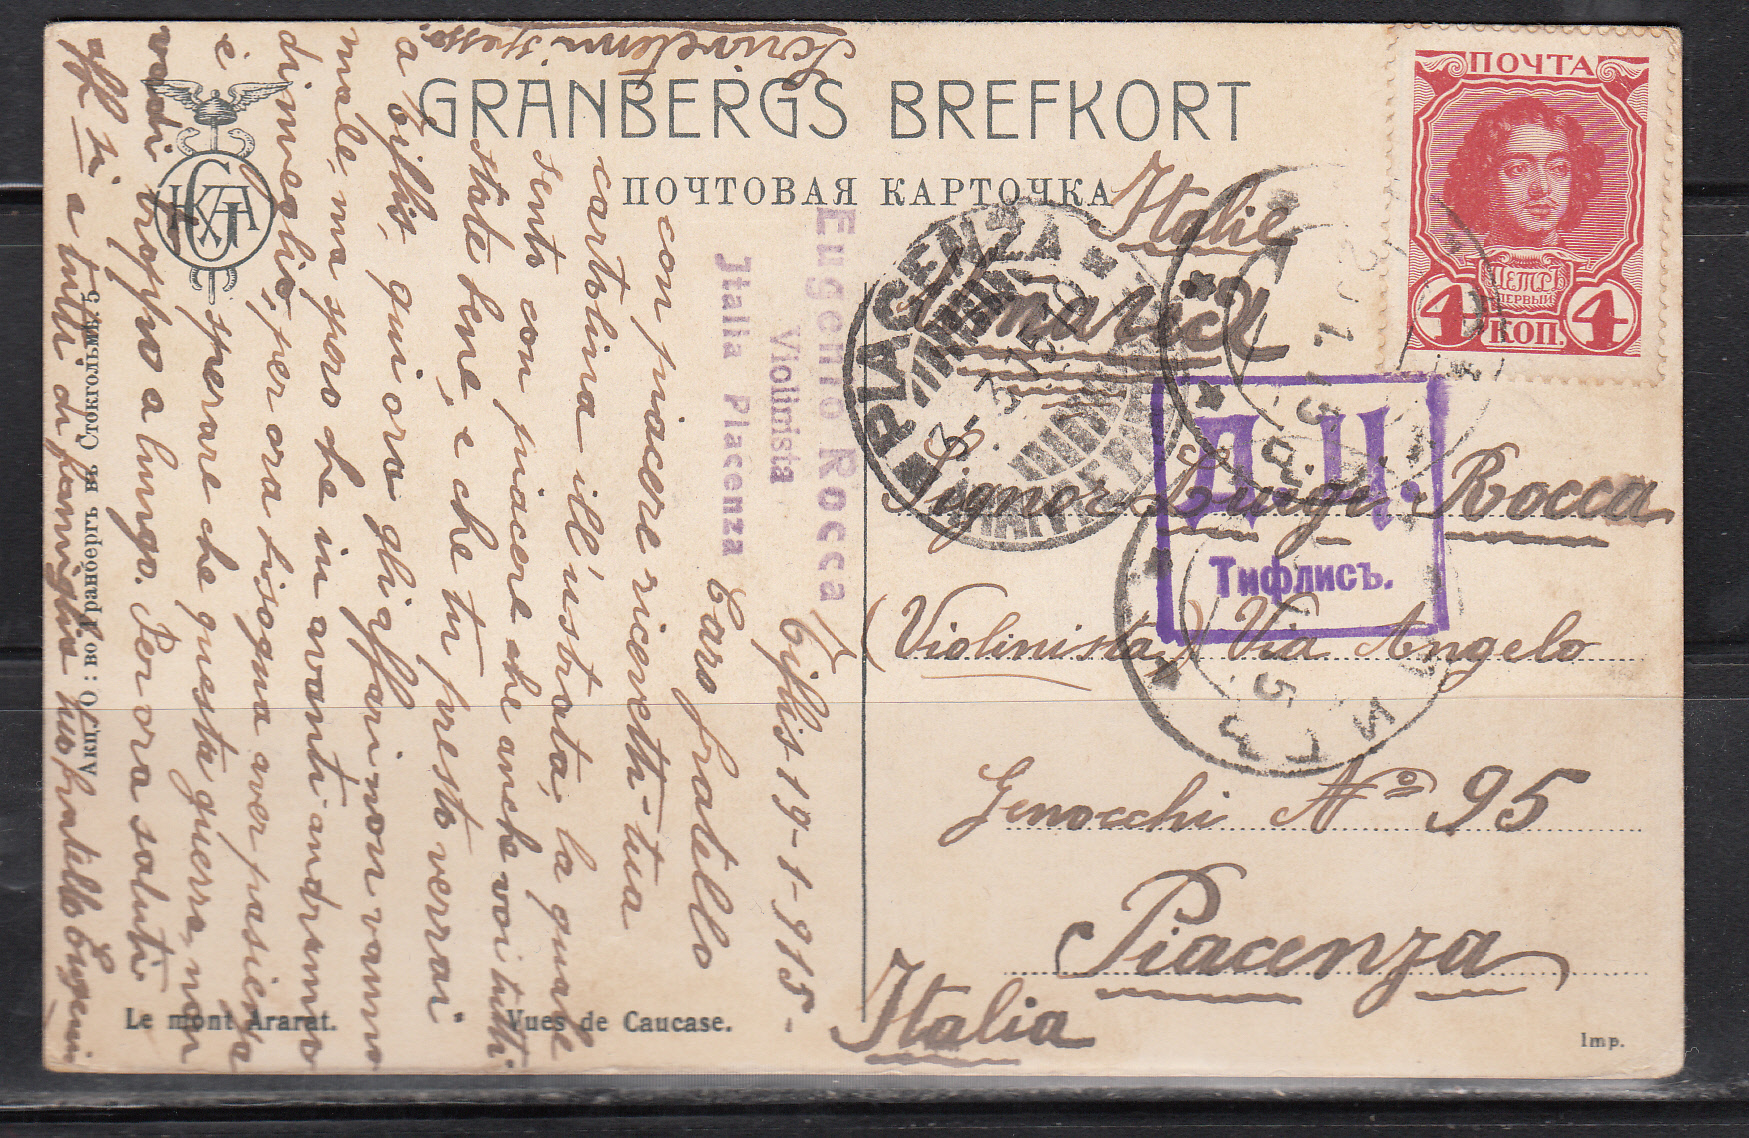 GRANBERGS BREFKORT
ПОЧТОВАЯ КАРТОЧКА
ПОЧТА
ПЕТРЪ
ПЕРВЫЙ
4 КОП. 4
Italie
PIACENZA
3-3-15 19
Д.Ц.
Тифлисъ.
Signor Luigi Rocca
(Violinista) Via Angelo
Genocchi Nº 95
Piacenza
Italia
Imp.
Eugenio Rocca
Violinista
Italia Piacenza
Tiflis 19-1-915-
Caro fratello
con piacere ricevetti tua
cartolina ill'ustrata, la quale
sento con piacere che anche voi tutti
state bene, e che tu presto verrai
a Tiflis, qui ora gli affari non vanno
male, ma spero che in avanti andranno
di meglio, per ora bisogna aver pasienza
e sperare che questa guerra, non
vadi troppo a lungo. Per ora saluti
aff si a tutti di famiglia tuo fratello Eugenio
Scrivetemi spesso.
Le mont Ararat.
Vues de Caucase.
Акц. О: во Гранбергъ въ Стокгольмѣ. 5